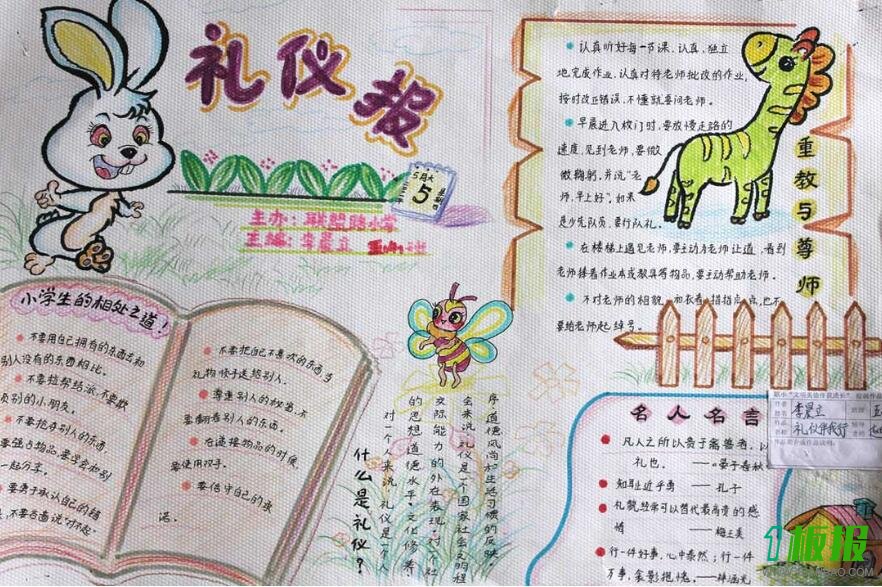 礼仪报
5月大
5
星期四
主办：联盟路小学
主编：李晨立
班
小学生的相处之道！
不要用自己拥有的东西去和
别人没有的东西相比。
不要拉帮结派，不要欺
负别的小朋友。
不要抢夺别人的东西，
要强占物品，要学会和别
一起分享。
要勇于承认自己的错
，不要否着说"对不起"
不要把自己不喜欢的东西当
礼物顺手送给别人。
尊重别人的秘密，不
要翻看别人的东西。
在递接物品的时候，
要使用双手。
要信守自己的承
诺。
什么是礼仪？
对一个人来说，礼仪是一个人
的思想道德水平、文化修养、
交际能力的外在表现，对社
会来说，礼仪是一个国家社会文明程
序、道德风尚和生活习惯的反映。
认真听好每一节课，认真、独立
地完成作业，认真对待老师批改的作业，
按时改正错误，不懂就要问老师。
早晨进入校门时，要放慢走路的
速度，见到老师，要微
微鞠躬，并说"老
师，早上好"。如果
是少先队员，要行队礼。
在楼梯上遇见老师，要主动为老师让道，看到
老师捧着作业本或教具等物品，要主动帮助老师。
不对老师的相貌、和衣着指指点点，也不
要给老师起绰号。
重教与尊师
名人名言
凡人之所以贵于禽兽者，以
礼也。——《晏子春秋》
知耻近乎勇 ——孔子
礼貌经常可以替代最高贵的感
情 ——梅里美
行一件好事，心中泰然；行一件
李晨立
礼仪伴我行
板报